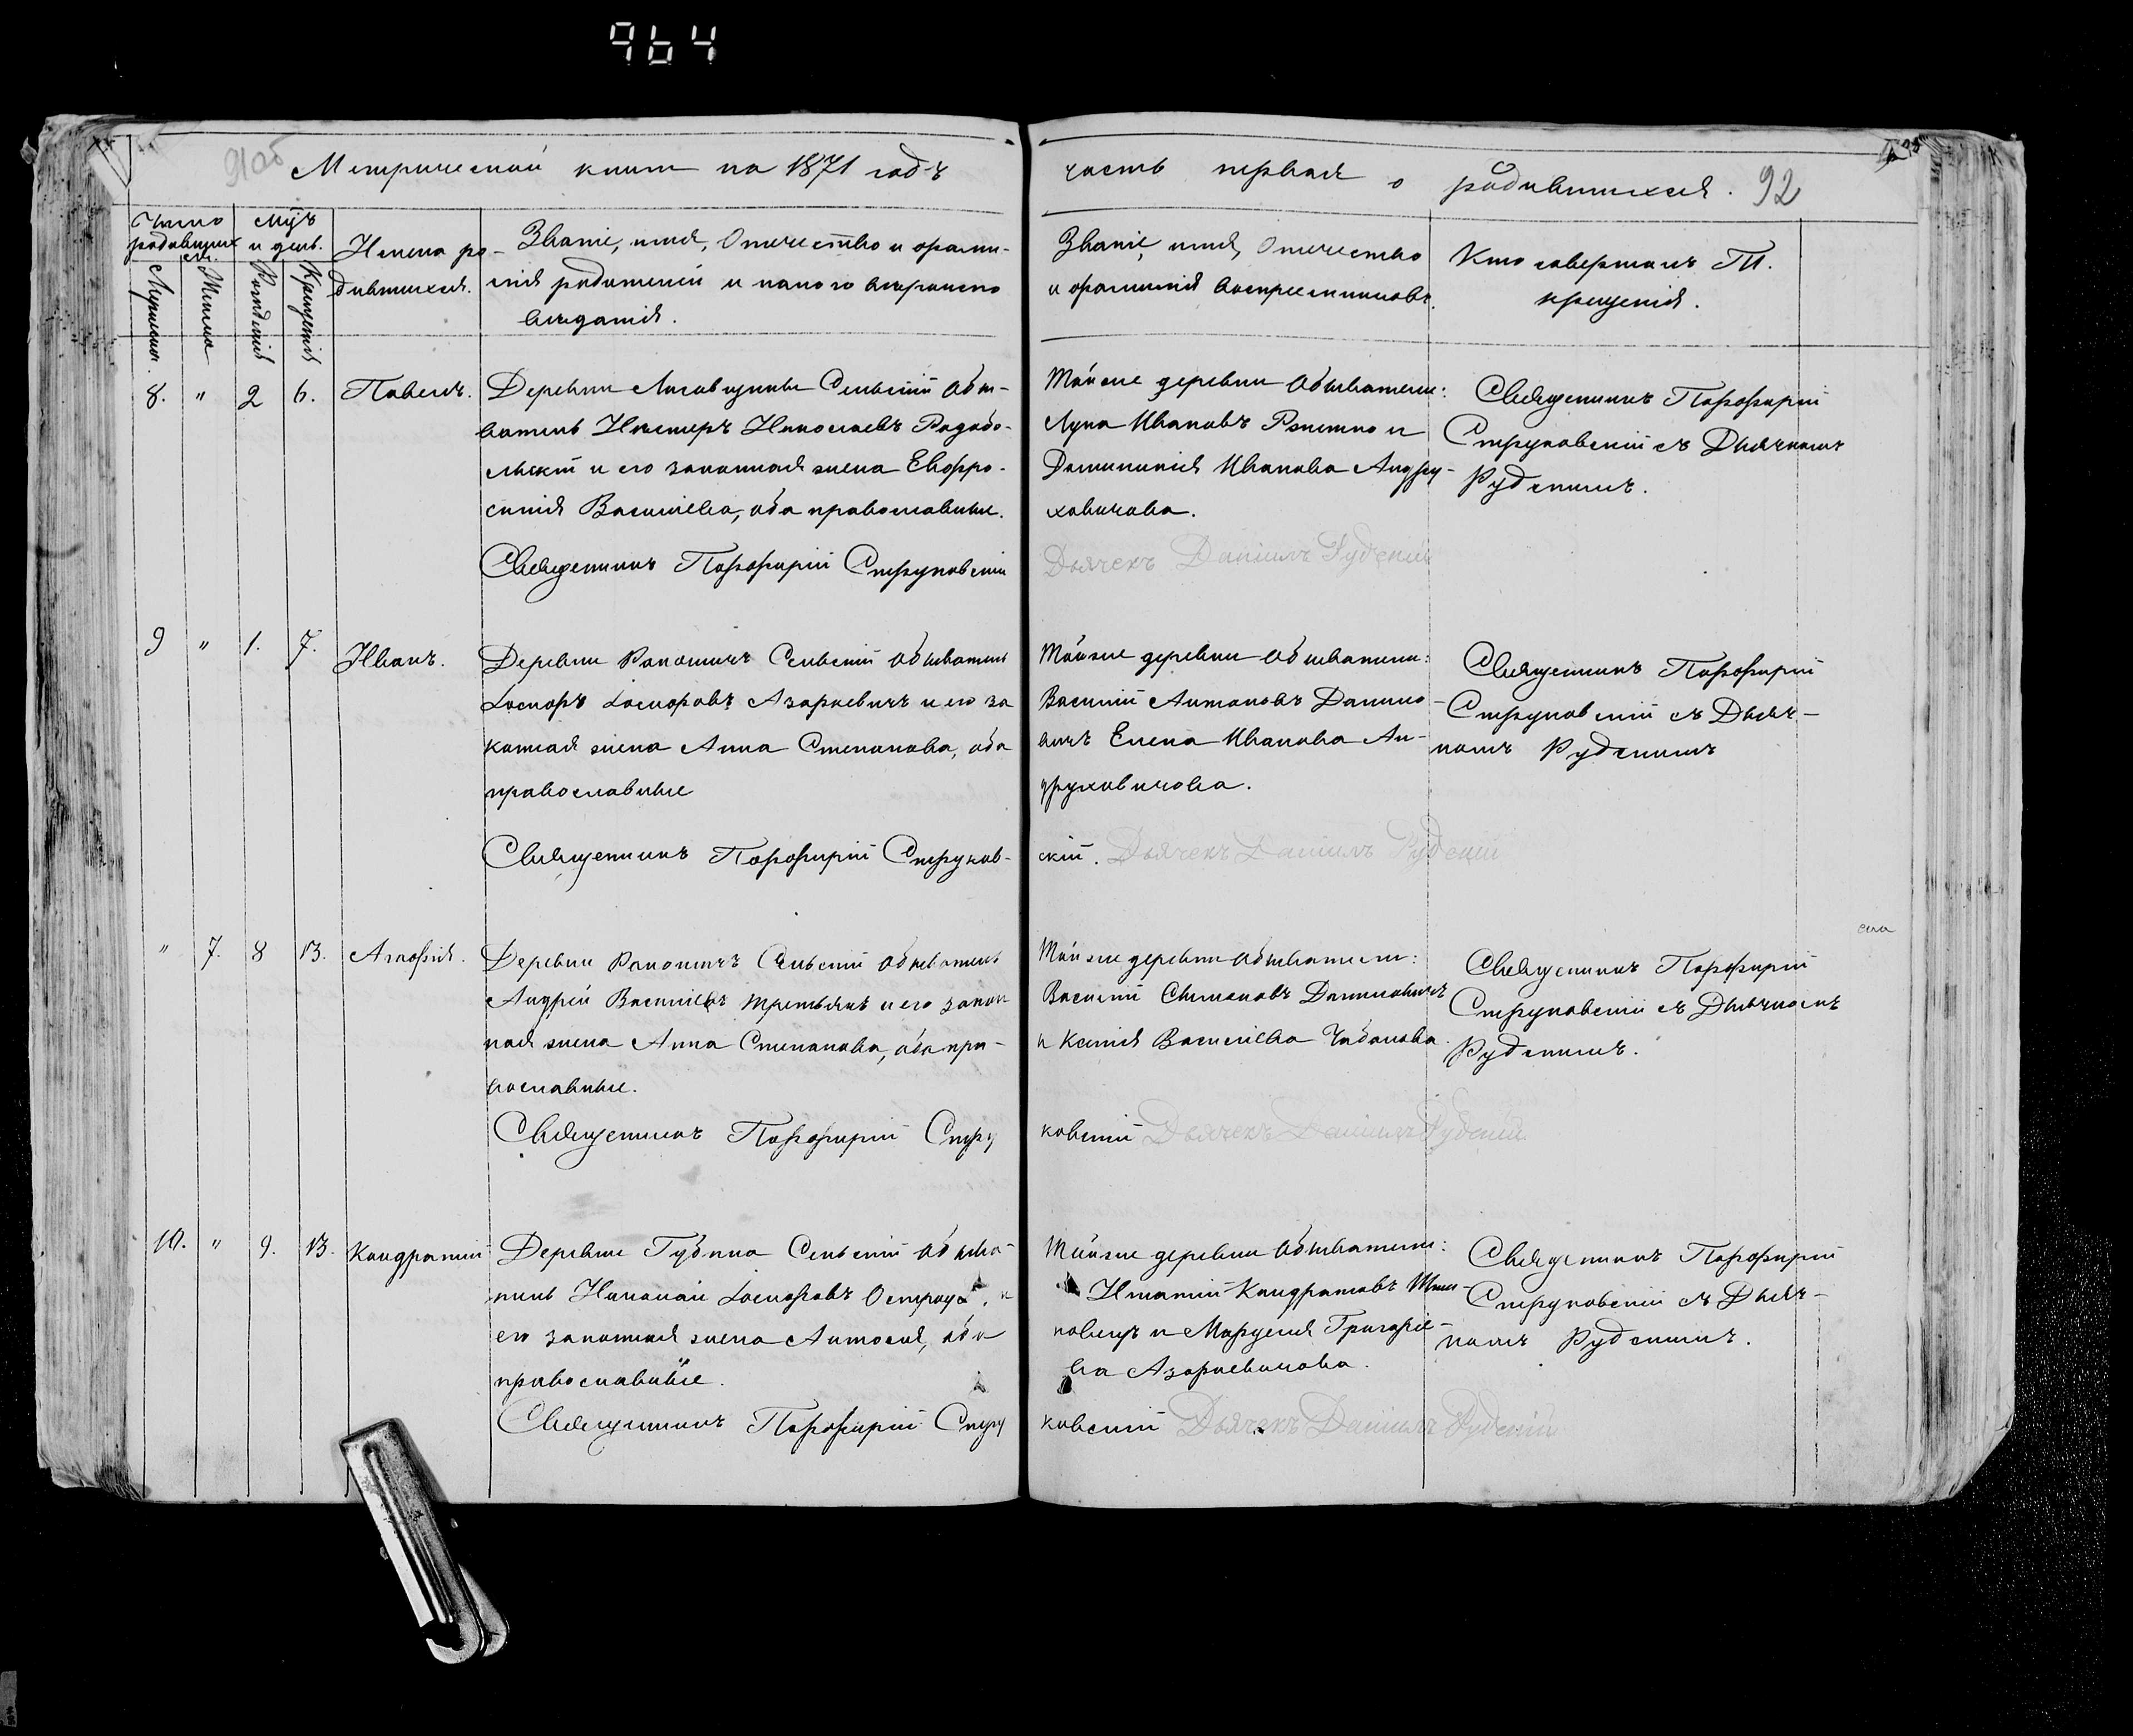 964
91об
Метрической книги на 1871 годъ
часть первая о родившихся. 92
Число родившихся.
Мужеска.
Женска
Мѣс. и день.
Рожденія
Крещенія
Имена ро-
дившихся.
Званіе, имя, Отчество и фами-
лія родителей и какого вѣроиспо
вѣданія.
Званіе, имя, Отчество
и фамилія воспріемниковъ.
Кто совершалъ Т.
крещенія.
8. " 2 6. Павелъ.
Деревни Сельскій Обы-
ватель Нестеръ Николаевъ Радобо-
льскій и его законная жена Евфро-
синія Василіева, оба православные.
Священникъ Порфирій Струковскій
Той же деревни Обыватели:
Лука Ивановъ и
Доминикія Иванова Андру-
ховичова.
Дьячекъ Даніилъ Рудскій
Священникъ Порфирій
Струковскій съ Дьячкомъ
Рудскимъ.
9 " 1. 7. Иванъ.
Деревни Сельскій Обыватель
Ѳеодоръ Ѳеодоровъ Азаркевичъ и его за
конная жена Анна Степанова, оба
православные
Священникъ Порфирій Струков-
Той же деревни Обыватели:
Василій Антоновъ Данило-
вичъ Елена Иванова Ан-
друховичова.
скій. Дьячекъ Даніилъ Рудскій
Священникъ Порфирій
Струковскій съ Дьяч-
комъ Рудскимъ
" 7. 8 13. Агафія.
Деревни Сельскій Обыватель
Андрей Василіевъ Третьякъ и его закон
ная жена Анна Степанова, оба пра-
вославные.
Священникъ Порфирій Стру
Той же деревни Обыватели:
Василій Симоновъ Даниловичъ
и Ксенія Василіева Чабанова.
ковскій Дьячекъ Даніилъ Рудскій
Священникъ Порфирій
Струковскій съ Дьячкомъ
Рудскимъ.
10. " 9. 13. Кондратій
Деревни Губина Сельскій Обыва-
тель Николай Ѳеодоровъ и
его законная жена Антонія, оба
православные.
Священникъ Порфирій Стру
Той же деревни Обыватели:
Игнатій Кондратовъ
и Марцелія Григоріе-
ва Азаркевичова.
ковскій Дьячекъ Даніилъ Рудскій
Священникъ Порфирій
Струковскій съ Дьяч-
комъ Рудскимъ.